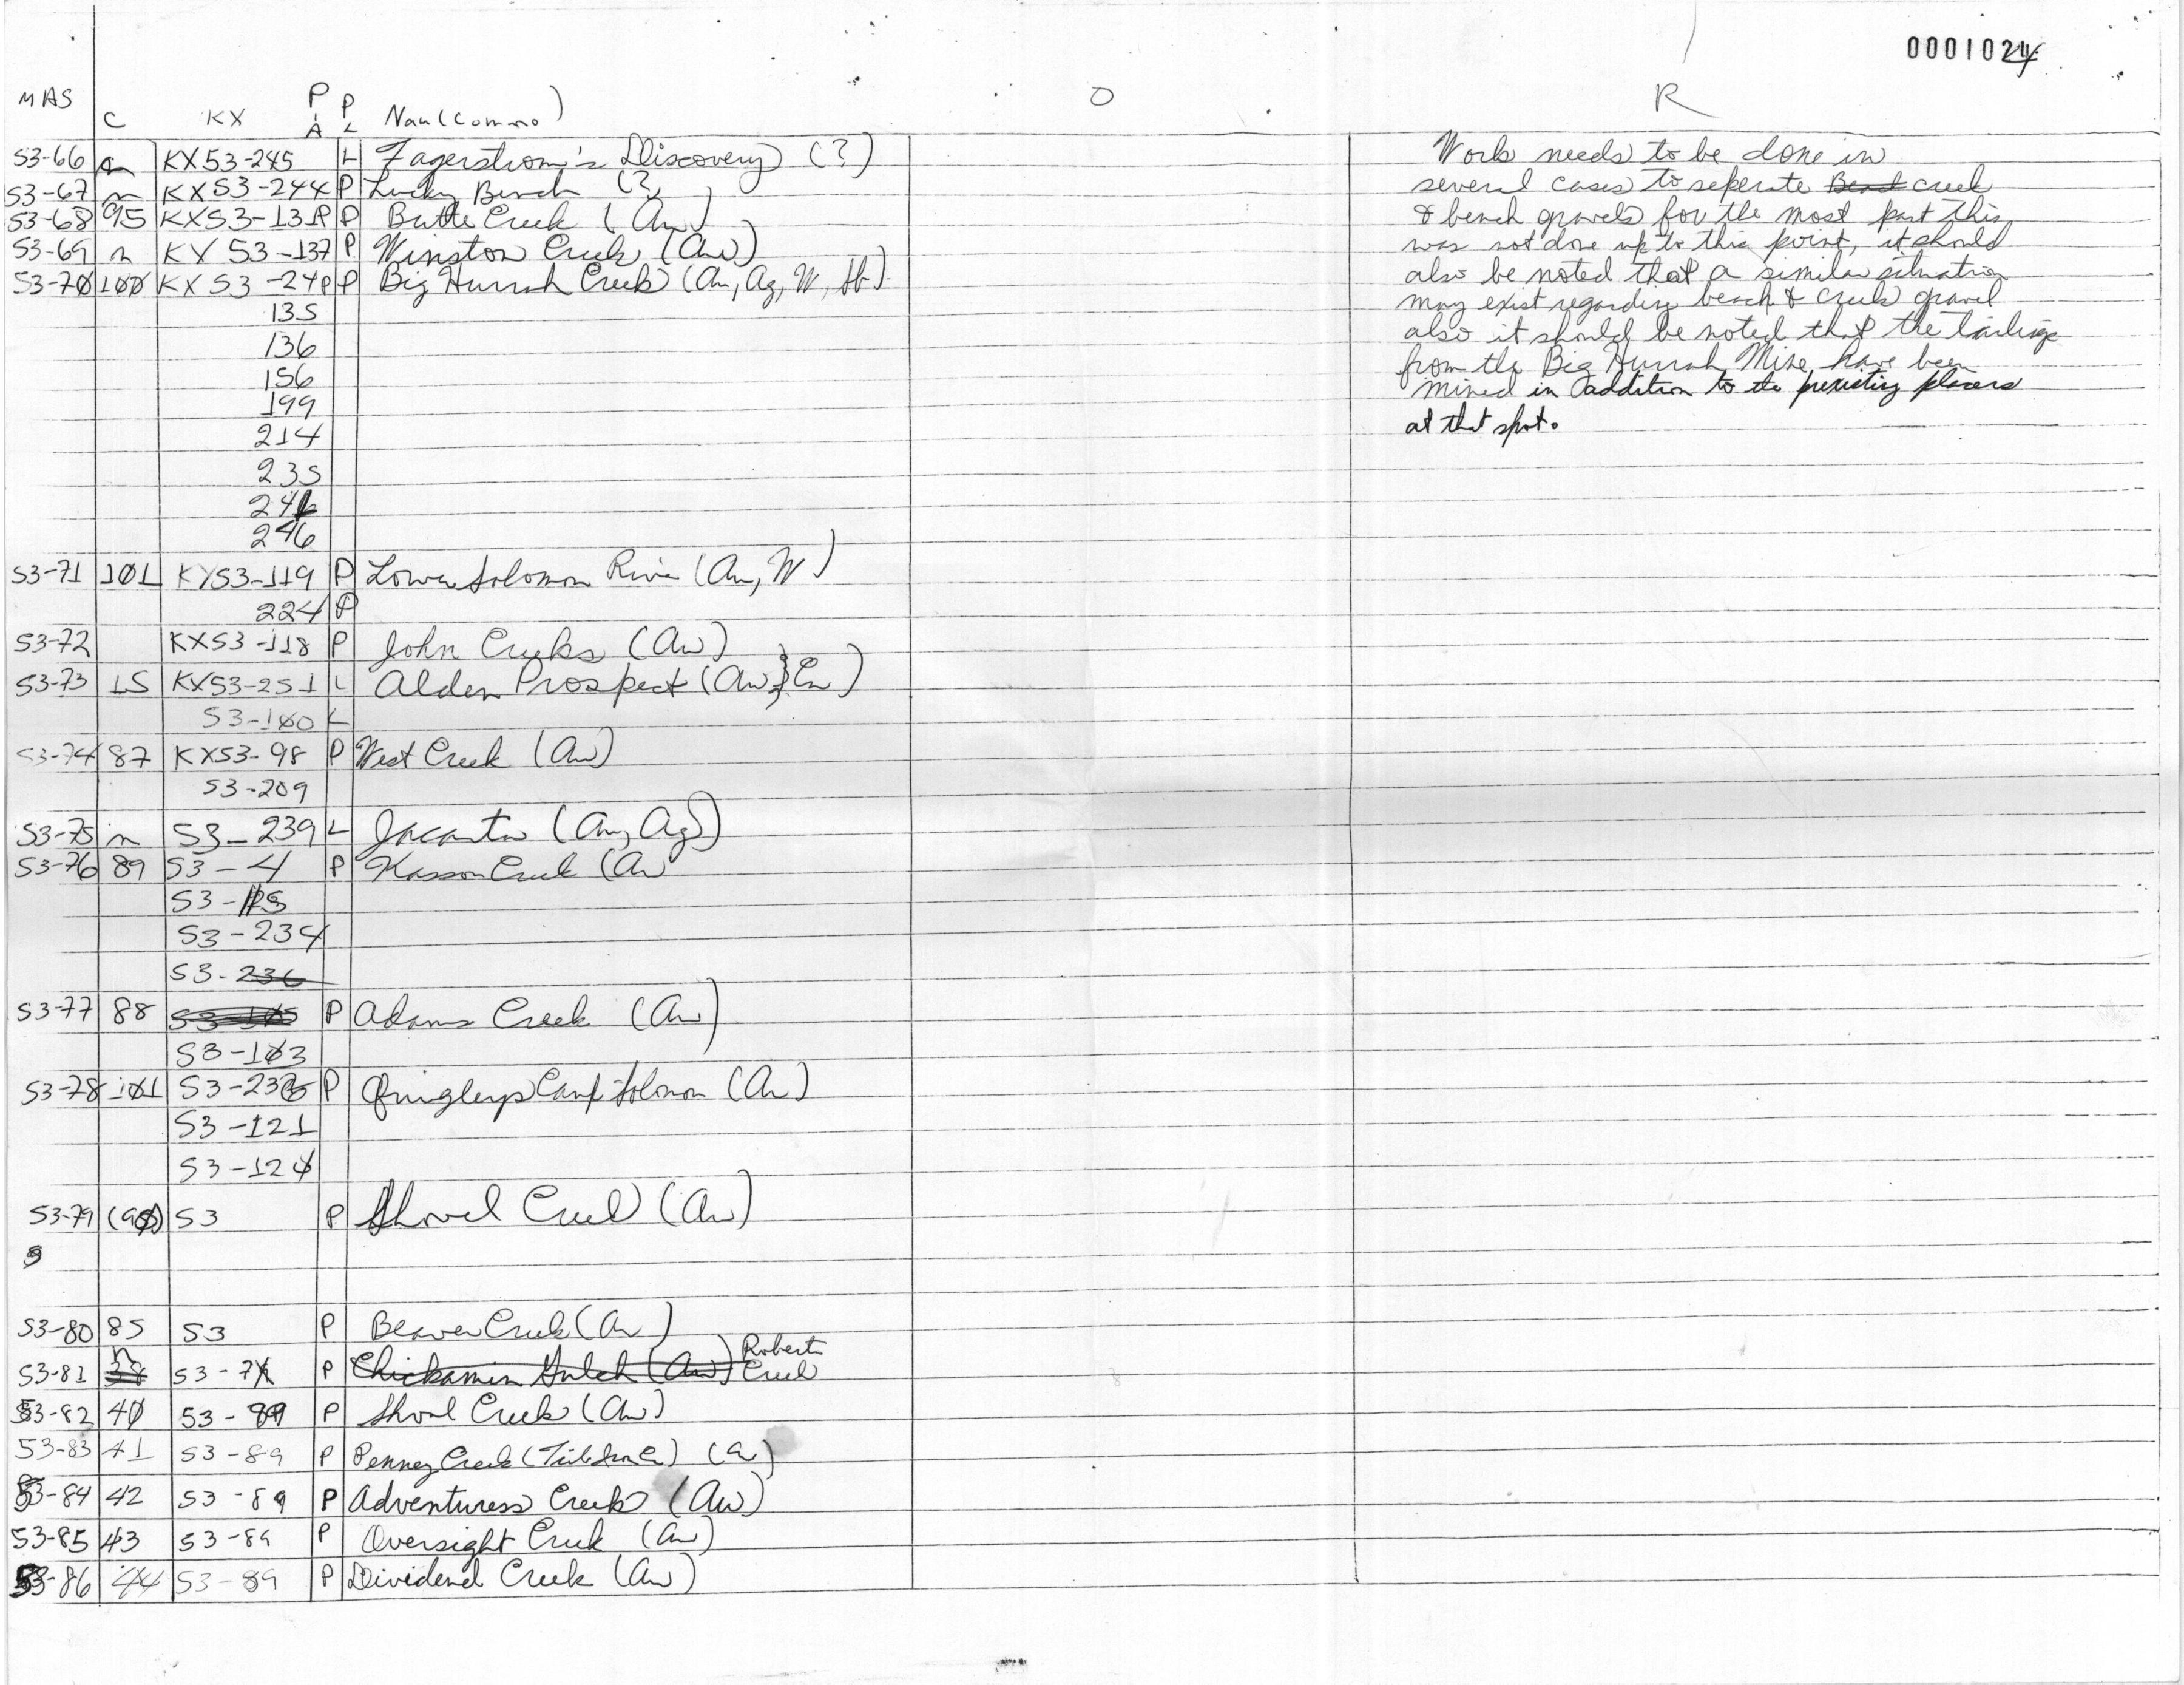 000102
MAS C KX P A P L Name (Commo)
O
R
53-66 n KX53-245 L Fagerstrom's Discovery (?)
53-67 n KX53-244 P Lucky Bench (?)
53-68 95 KX53-131 P P Butte Creek (Au)
53-69 n KX 53-137 P Winston Creek (Au)
53-70 100 KX 53-24 P Big Hurrah Creek (Au, Ag, W, Sb)
135
136
156
199
214
235
246
53-71 101 KX53-119 P Lower Solomon River (Au, W)
224 P
53-72 KX53-118 P John Creek (Au)
53-73 15 KX53-251 L Alden Prospect (Au, Cu)
53-100 L
53-74 87 KX53-98 P West Creek (Au)
53-209
53-75 n 53-239 L (Au, Ag)
53-76 89 53-4 P Kasson Creek (Au
53-
53-234
53-236
53-77 88 53-105 P Adams Creek (Au)
53-103
53-78 101 53-23 P Quigleys Camp Solomon (Au)
53-121
53-124
53-79 (90) 53 P Shovel Creek (Au)
53-80 85 53 P Beaver Creek (Au)
53-81 n 53-7 P Chickamin Gulch (Au) Roberts Creek
53-82 40 53-89 P Shoal Creek (Au)
53-83 41 53-89 P Penney Creek (Au)
53-84 42 53-89 P Adventuress Creek (Au)
53-85 43 53-89 P Oversight Creek (Au)
53-86 44 53-89 P Dividend Creek (Au)
Work needs to be done in
several cases to seperate Bend creek
& bench gravels for the most part this
was not done up to this point, it should
also be noted that a similar situation
may exist regarding beach & creek gravel
also it should be noted that the tailings
from the Big Hurrah Mine have been
mined in addition to the prexisting placers
at that spot.